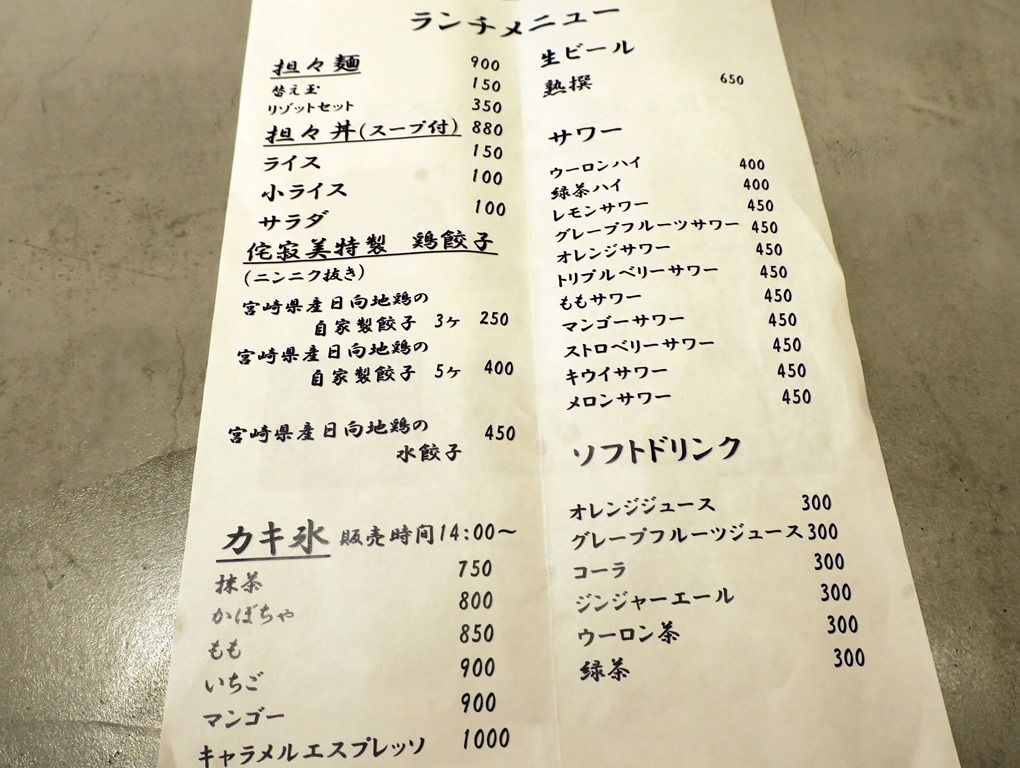 ランチメニュー
担々麺 900
替え玉 150
リゾットセット 350
担々丼(スープ付) 880
ライス 150
小ライス 100
サラダ 100
侘寂美特製 鶏餃子
(ニンニク抜き)
宮崎県産日向地鶏の
自家製餃子 3ヶ 250
宮崎県産日向地鶏の
自家製餃子 5ヶ 400
宮崎県産日向地鶏の 450
水餃子
カキ氷 販売時間14:00～
抹茶 750
かぼちゃ 800
もも 850
いちご 900
マンゴー 900
キャラメルエスプレッソ 1000
生ビール
熟撰 650
サワー
ウーロンハイ 400
緑茶ハイ 400
レモンサワー 450
グレープフルーツサワー 450
オレンジサワー 450
トリプルベリーサワー 450
ももサワー 450
マンゴーサワー 450
ストロベリーサワー 450
キウイサワー 450
メロンサワー 450
ソフトドリンク
オレンジジュース 300
グレープフルーツジュース 300
コーラ 300
ジンジャーエール 300
ウーロン茶 300
緑茶 300